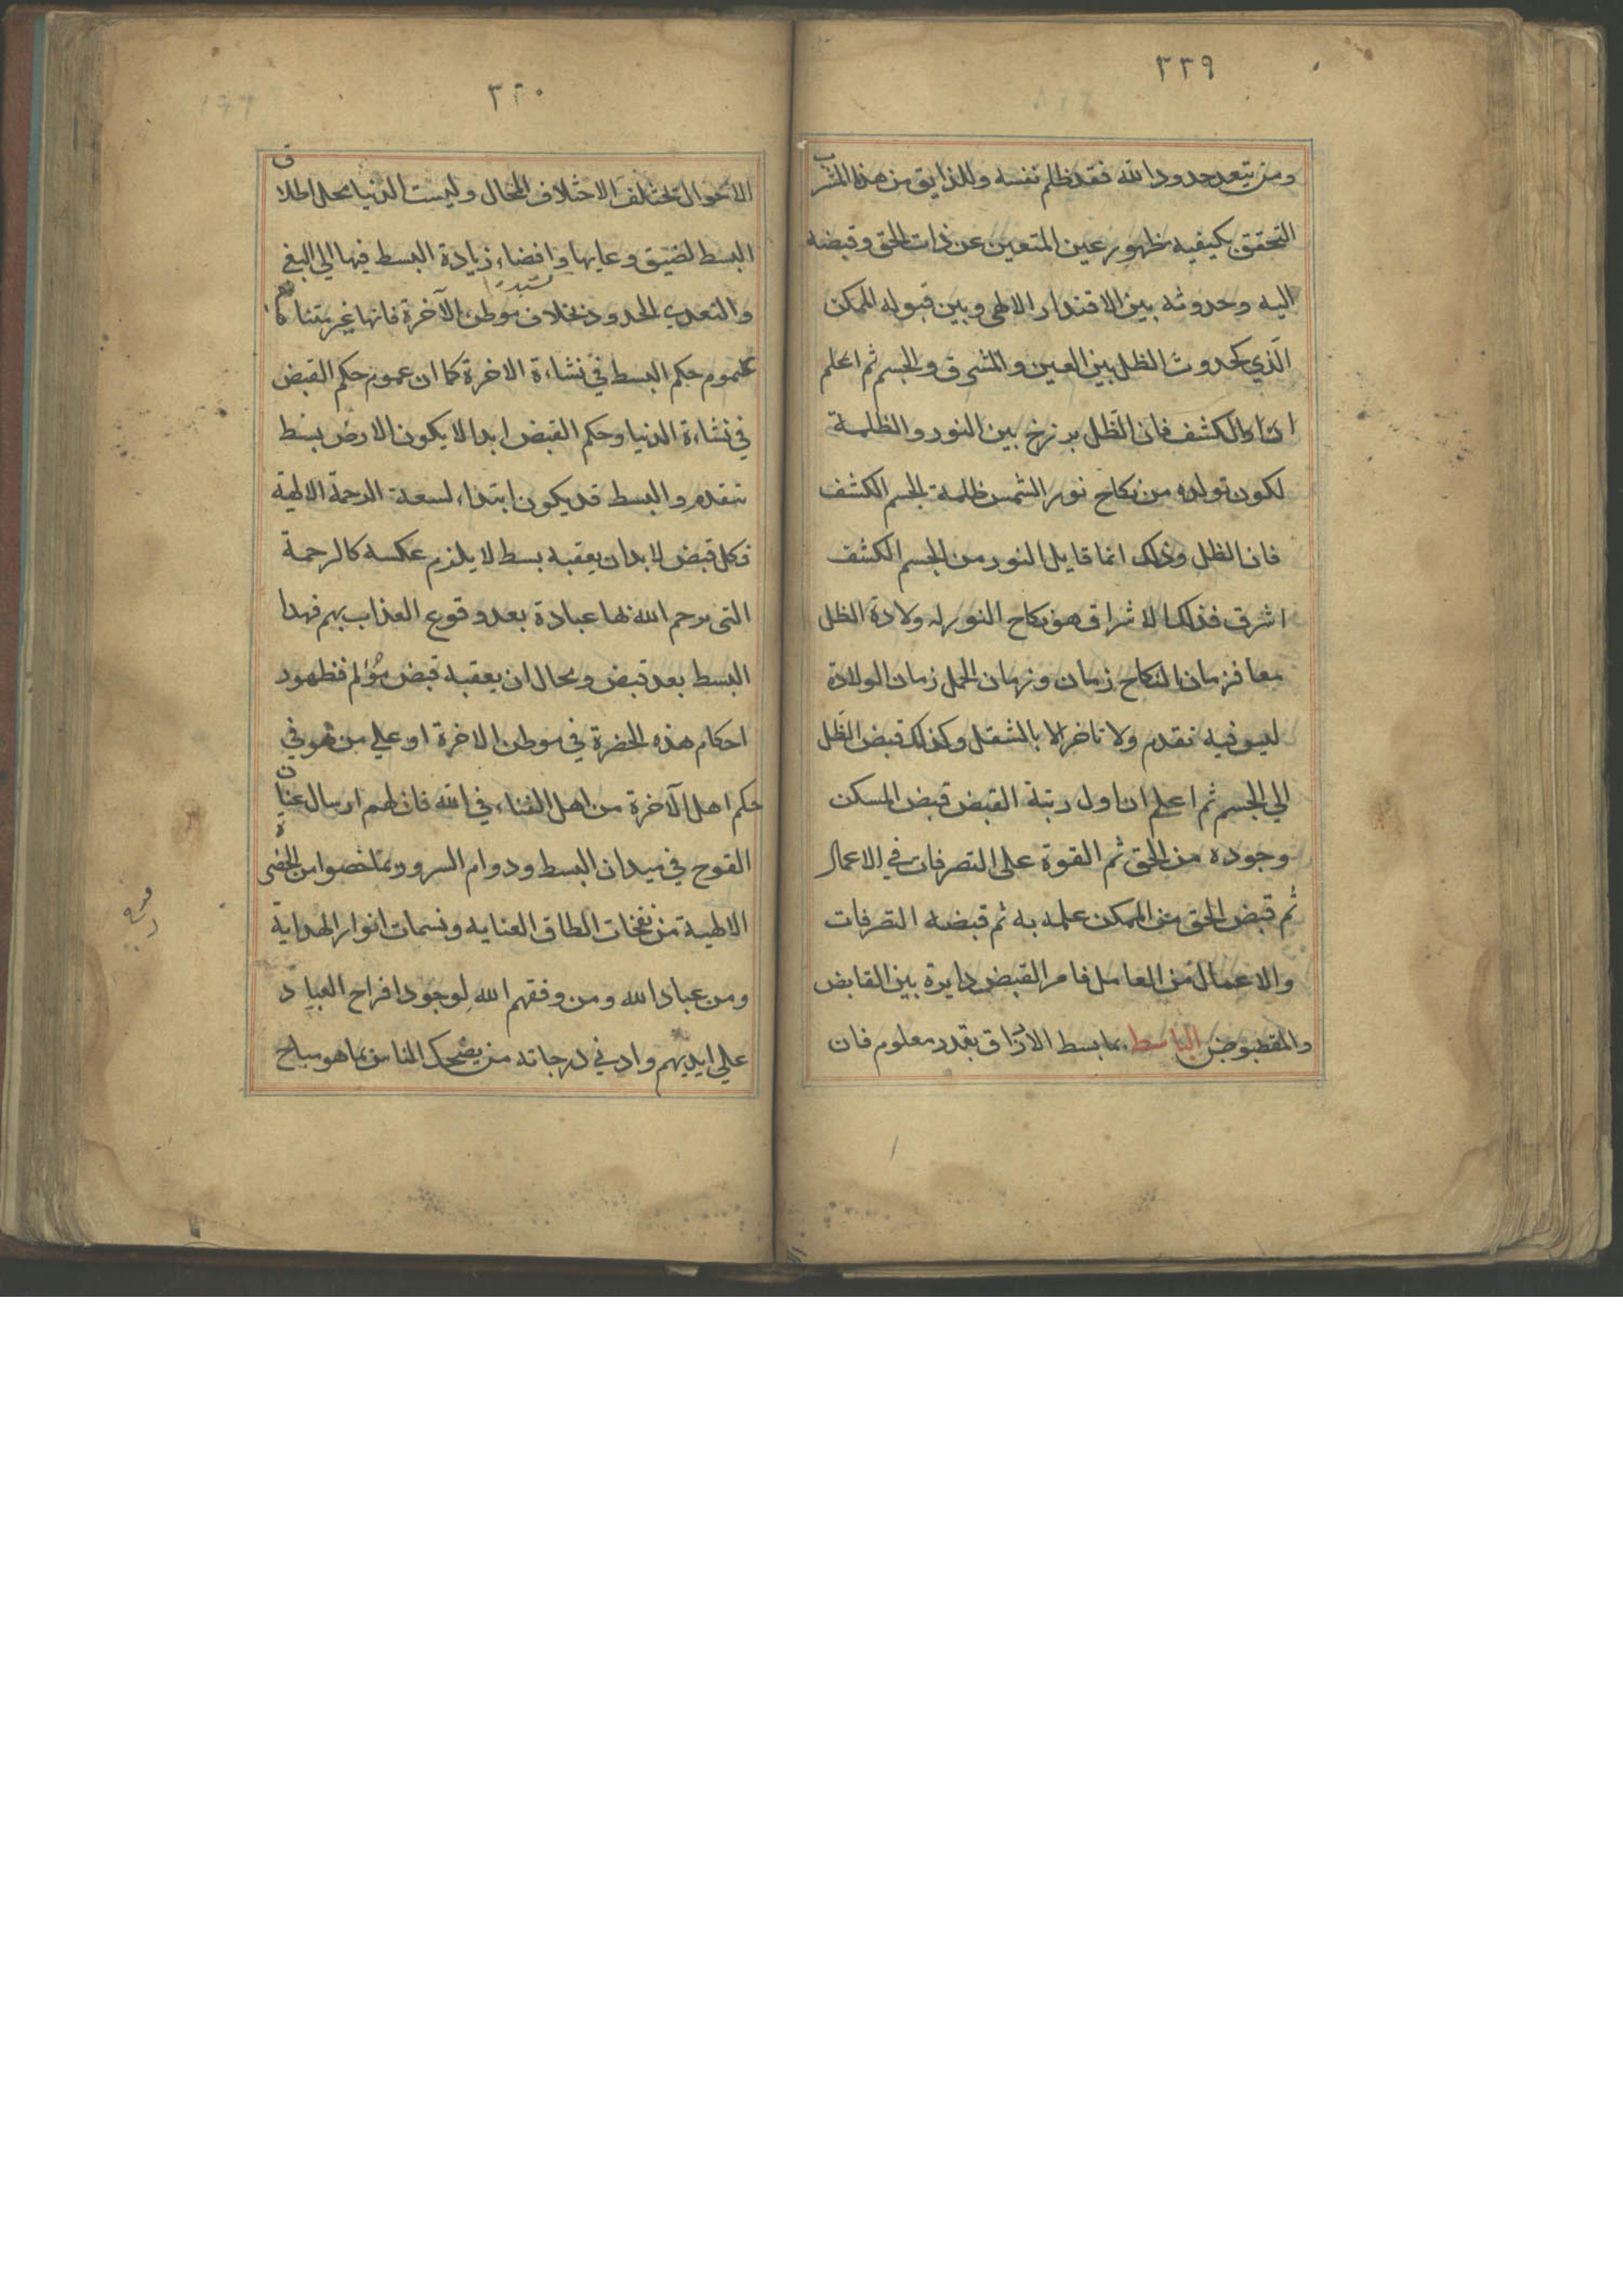 ٣٣٩
ومن يتعد حدود الله فقد ظلم نفسه وللذايق من هذه المشرب
التحقق بكيفيه ظهور عين المتعين عن ذات الحق وقبضه
اليه وحدوثه بين الاقتدار الالهي وبين قبوله الممكن
الذي كحدوث الظل بين العين والمشرق والجسم ثم اعلم
الكشف فان الظل برزخ بين النور والظلمة
لكون تولده من نكاح نور الشمس ظلمة الجسم الكشف
فان الظل وذلك انما قايل النور من الجسم الكشف
اشرق فذلك الاشراق هو نكاح النور له ولادة الظل
معا فزمان النكاح زمان وزمان الحمل زمان الولادة
ليس فيه تقدم ولا تاخر الا بالشقل وكذلك قبض الظل
الي الجسم ثم اعلم ان اول رتبة القبض قبض المسكن
وجوده من الحق ثم القوة على التصرفات في الاعمال
ثم قبض الحق من الممكن علمه به ثم قبضه التصرفات
والاعمال من العامل فامر القبض دايرة بين القابض
والمقبوض الباسط بما بسط الارزاق بقدر معلوم فان
٣٤٠
الاحوال تختلف الاختلاف المحال وليست الدنيا محل اطلاق
البسط لضيق وعايها وافضاء زيادة البسط فيها الي البغي
والتعدي الحدود بخلاف موطن الآخرة فانها غير متناه كما
عموم حكم البسط في نشاءة الاخرة كما ان عموم حكم القبض
في نشاءة الدنيا وحكم القبض ابدا لا يكون الا رض بسط
تتقدم والبسط قد يكون ابتداء لسعة الرحمة الالهية
فكل قبض لا بد ان يعقبه بسط لا يلزم عكسه كالرحمة
التي يرحم الله بها عبادة بعد وقوع العذاب بهم فهذا
البسط بعد قبض ومحال ان يعقبه قبض مؤلم فظهود
احكام هذه الحضرة في موطن الاخرة او علي من هو في
حكم اهل الآخرة من اهل الفناء في الله فان لهم ارسال عنان
القوح في ميدان البسط ودوام السرور بما خصوا من الحضرة
الالهية من نفخات الطاق العنايه ونسمات انوار الهداية
ومن عباد الله ومن وفقهم الله لوجود افراح العباد
علي ايديهم وادني درجاته من يضحك الناس بما هو مباح